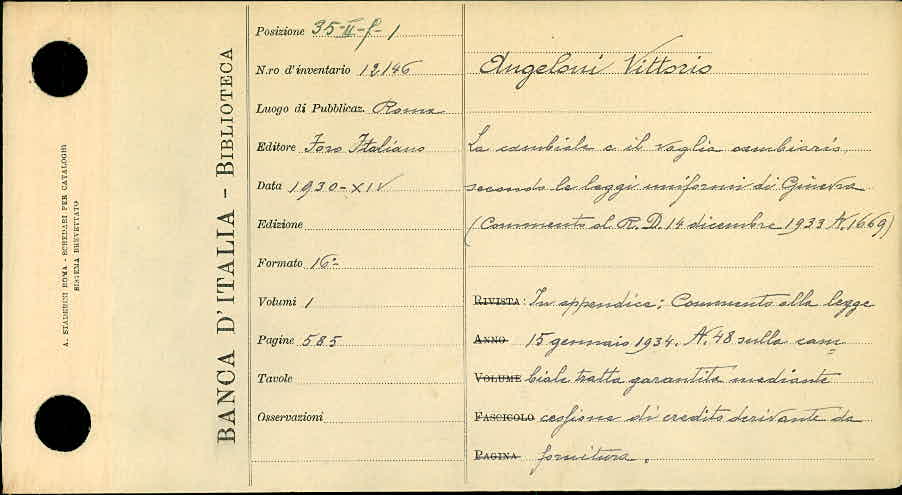 A. STADERINI ROMA - SCHEDARI PER CATALOGHI
SISTEMA BREVETTATO
BANCA D'ITALIA - BIBLIOTECA
Posizione 35-II-f-1
N.ro d'inventario 12146
Luogo di Pubblicaz. Roma
Editore Foro Italiano
Data 1930-XIV
Edizione
Formato 16º
Volumi 1
Pagine 585
Tavole
Osservazioni
Angeloni Vittorio
La cambiale e il vaglia cambiario,
secondo le leggi uniformi di Ginevra
(Commento al R. D. 14 dicembre 1933 N. 1669)
RIVISTA In appendice: Commento alla legge
ANNO 15 gennaio 1934. N. 48 sulla cam=
VOLUME biale tratta garantita mediante
FASCICOLO cessione di credito derivante da
PAGINA fornitura.